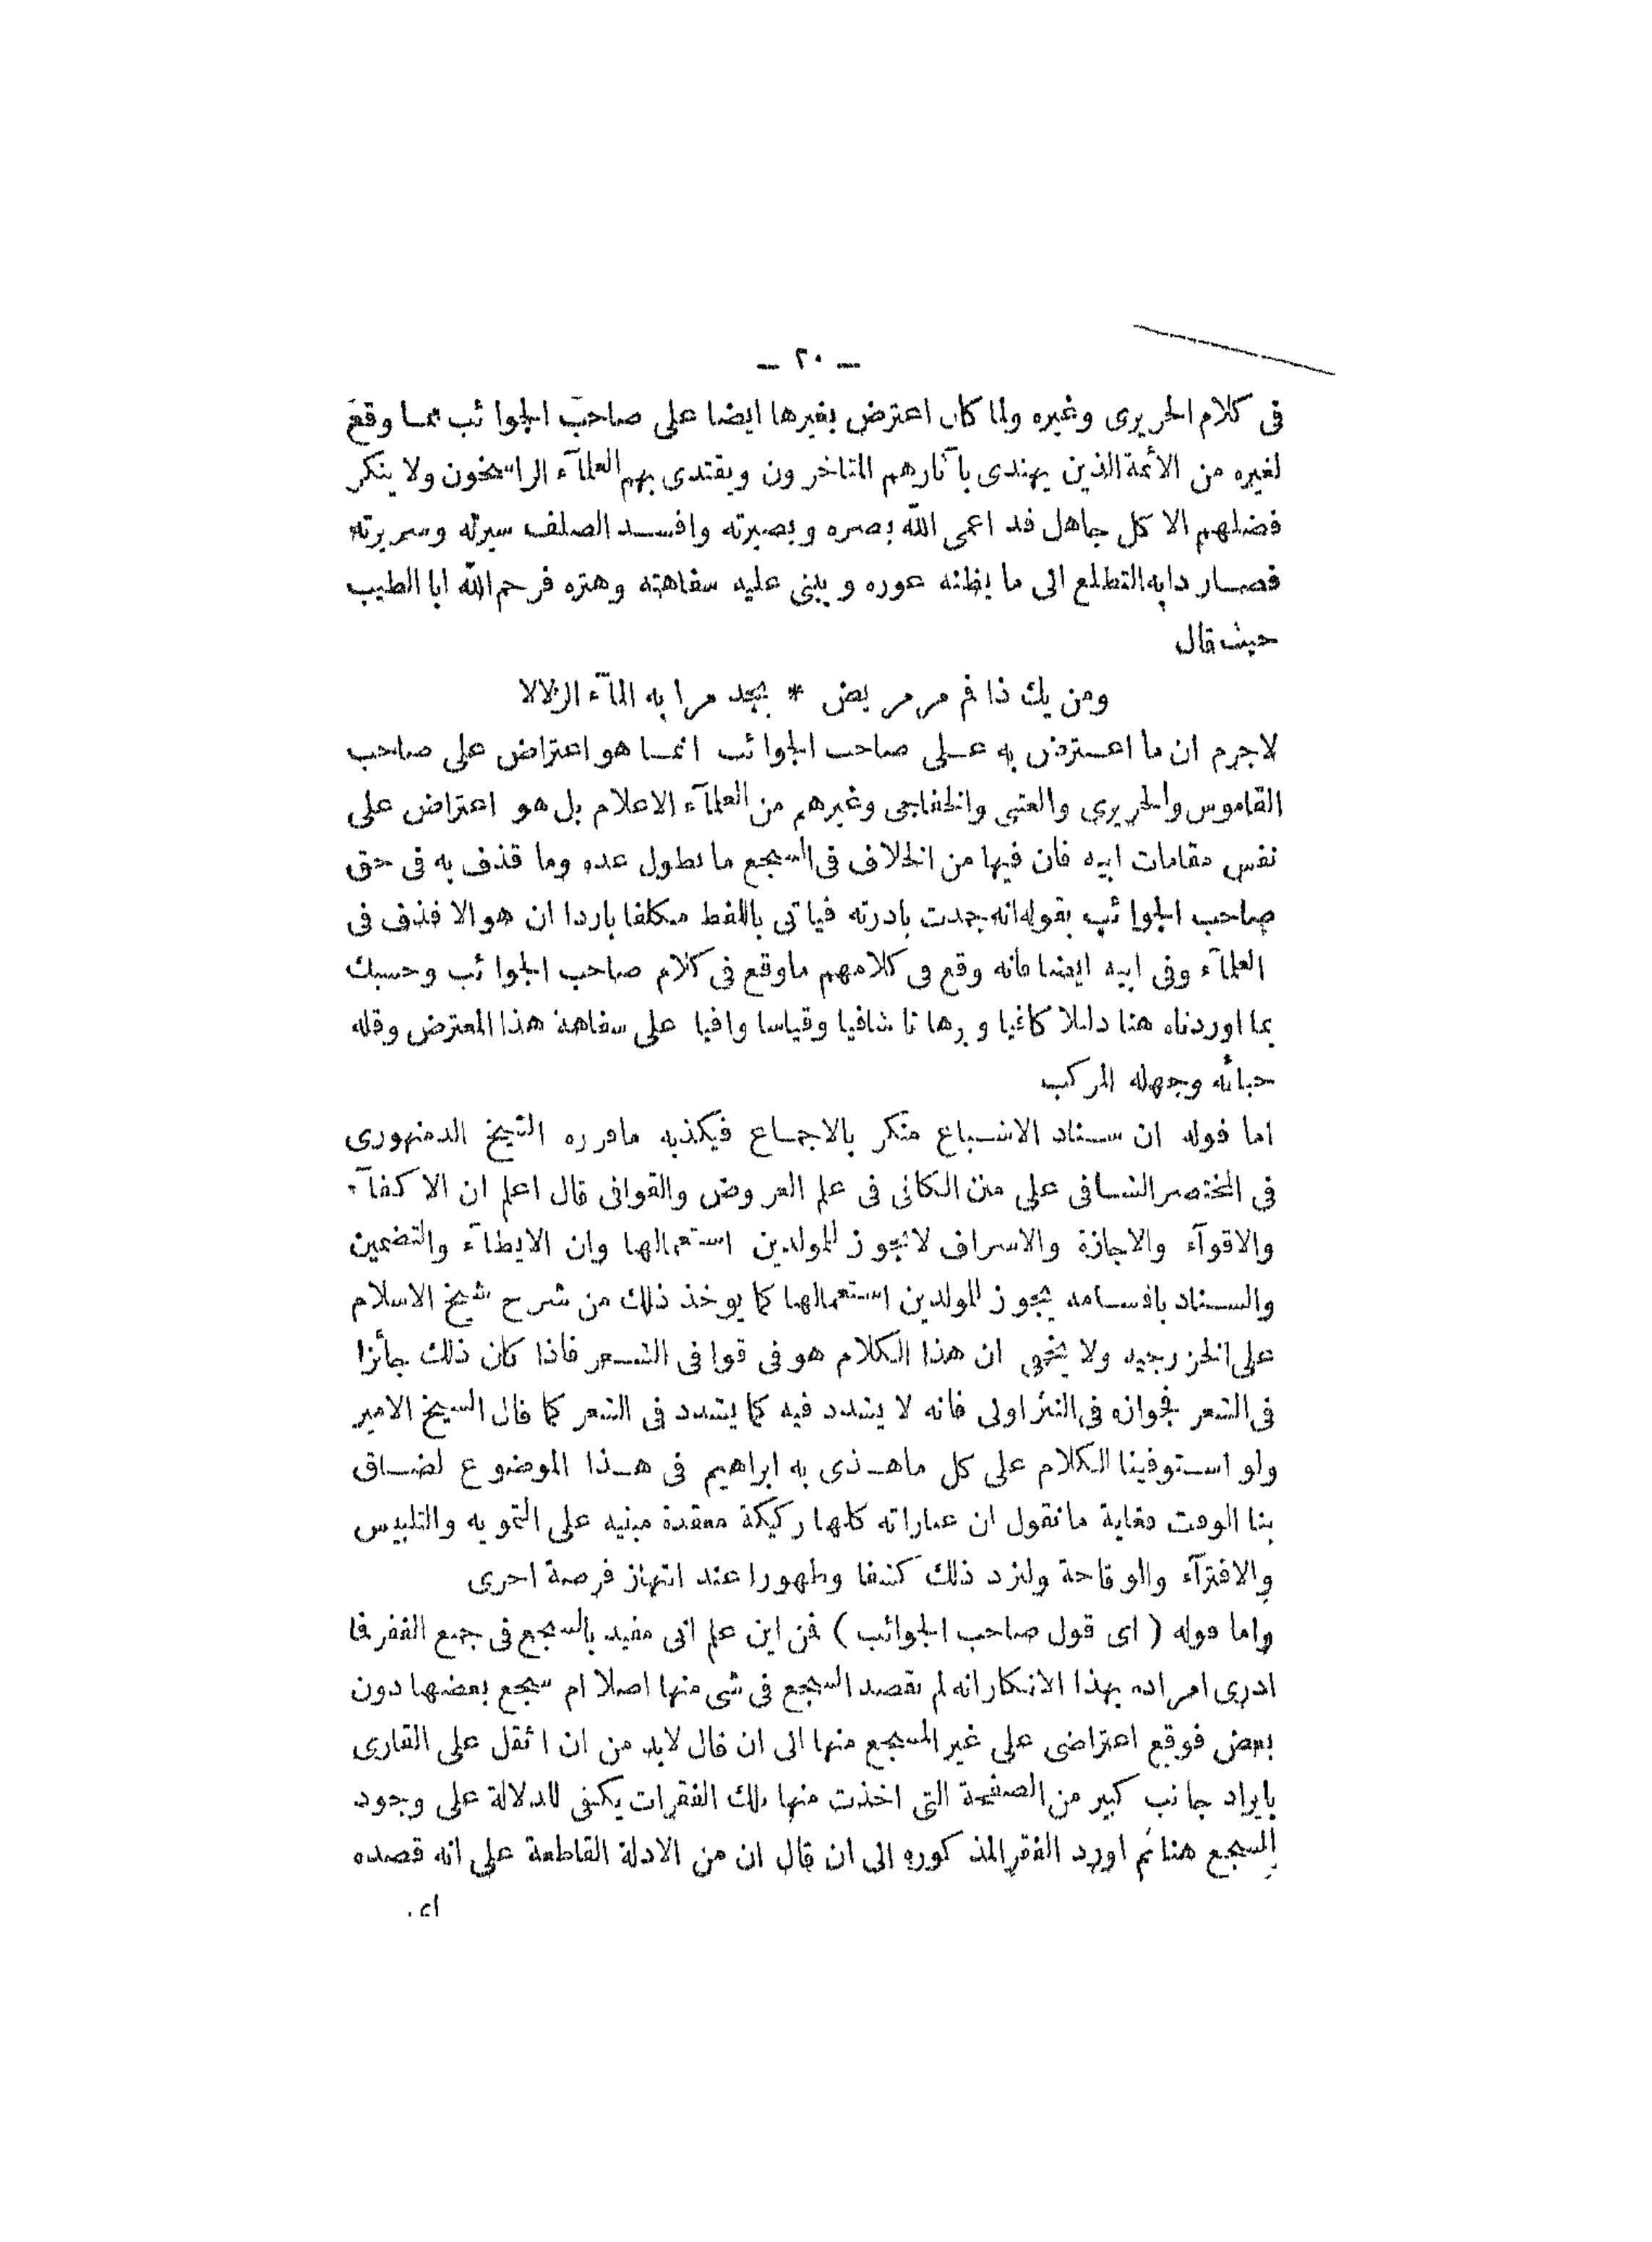 — ٢٠ —
فى كلام الحريرى وغيره ولما كان اعترض بغيرها ايضا على صاحب الجوائب بما وقع
لغيره من الأئمة الذين يهتدى بآثارهم المتاخرون ويقتدى بهم العلمآء الراسخون ولا ينكر
فضلهم الا كل جاهل قد اعمى الله بصره وبصيرته وافسد الصلف سيرته وسريرته
فصار دابه التطلع الى ما يظنه عوره ويبنى عليه سفاهته وهتره فرحم الله ابا الطيب
حيث قال
ومن يك ذا فم مر مريض * يجد مرا به المآء الزلالا
لاجرم ان ما اعترض به على صاحب الجوائب انما هو اعتراض على صاحب
القاموس والحريرى والعتبى والخفاجى وغيرهم من العلمآء الاعلام بل هو اعتراض على
نفس مقامات ابيه فان فيها من الخلاف فى السجع ما يطول عده وما قذف به فى حق
صاحب الجوائب بقوله انه جمدت بادرته فياتى باللفظ متكلفا باردا ان هو الا قذف فى
العلمآء وفى ابيه ايضا فانه وقع فى كلامهم ماوقع فى كلام صاحب الجوائب وحسبك
بما اوردناه هنا دليلا كافيا وبرهانا شافيا وقياسا وافيا على سفاهة هذا المعترض وقله
حيائه وجهله المركب
اما قوله ان سناد الاشباع منكر بالاجماع فيكذبه ماقرره الشيخ الدمنهورى
فى المختصر الشافى على متن الكافى فى علم العروض والقوافى قال اعلم ان الاكفآء
والاقوآء والاجازة والاسراف لا يجوز للمولدين استعمالها وان الايطآء والتضمين
والسناد باقسامه يجوز للمولدين استعمالها كما يوخذ ذلك من شرح شيخ الاسلام
على الخزرجيه ولا يخفى ان هذا الكلام هو فى قوافى الشعر فاذا كان ذلك جأئزا
فى الشعر فجوازه فى النثر اولى فانه لا يشدد فيه كما يشدد فى الشعر كما قال الشيخ الامير
ولو استوفينا الكلام على كل ماهذى به ابراهيم فى هذا الموضوع لضاق
بنا الوقت فغاية مانقول ان عباراته كلها ركيكة معقدة مبنيه على التمويه والتلبيس
والافترآء والوقاحة ولنزد ذلك كشفا وظهورا عند انتهاز فرصة اخرى
واما قوله ( اى قول صاحب الجوائب ) فمن اين علم انى مقيد بالسجع فى جميع الفقر فما
ادرى امراده بهذا الانكار انه لم يقصد السجع فى شى منها اصلا ام سجع بعضها دون
بعض فوقع اعتراضى على غير المسجع منها الى ان قال لابد من ان اثقل على القارى
بايراد جانب كبير من الصفيحة التى اخذت منها تلك الفقرات يكفى للدلالة على وجود
السجع هنا ثم اورد الفقر المذكوره الى ان قال ان من الادلة القاطعة على انه قصده